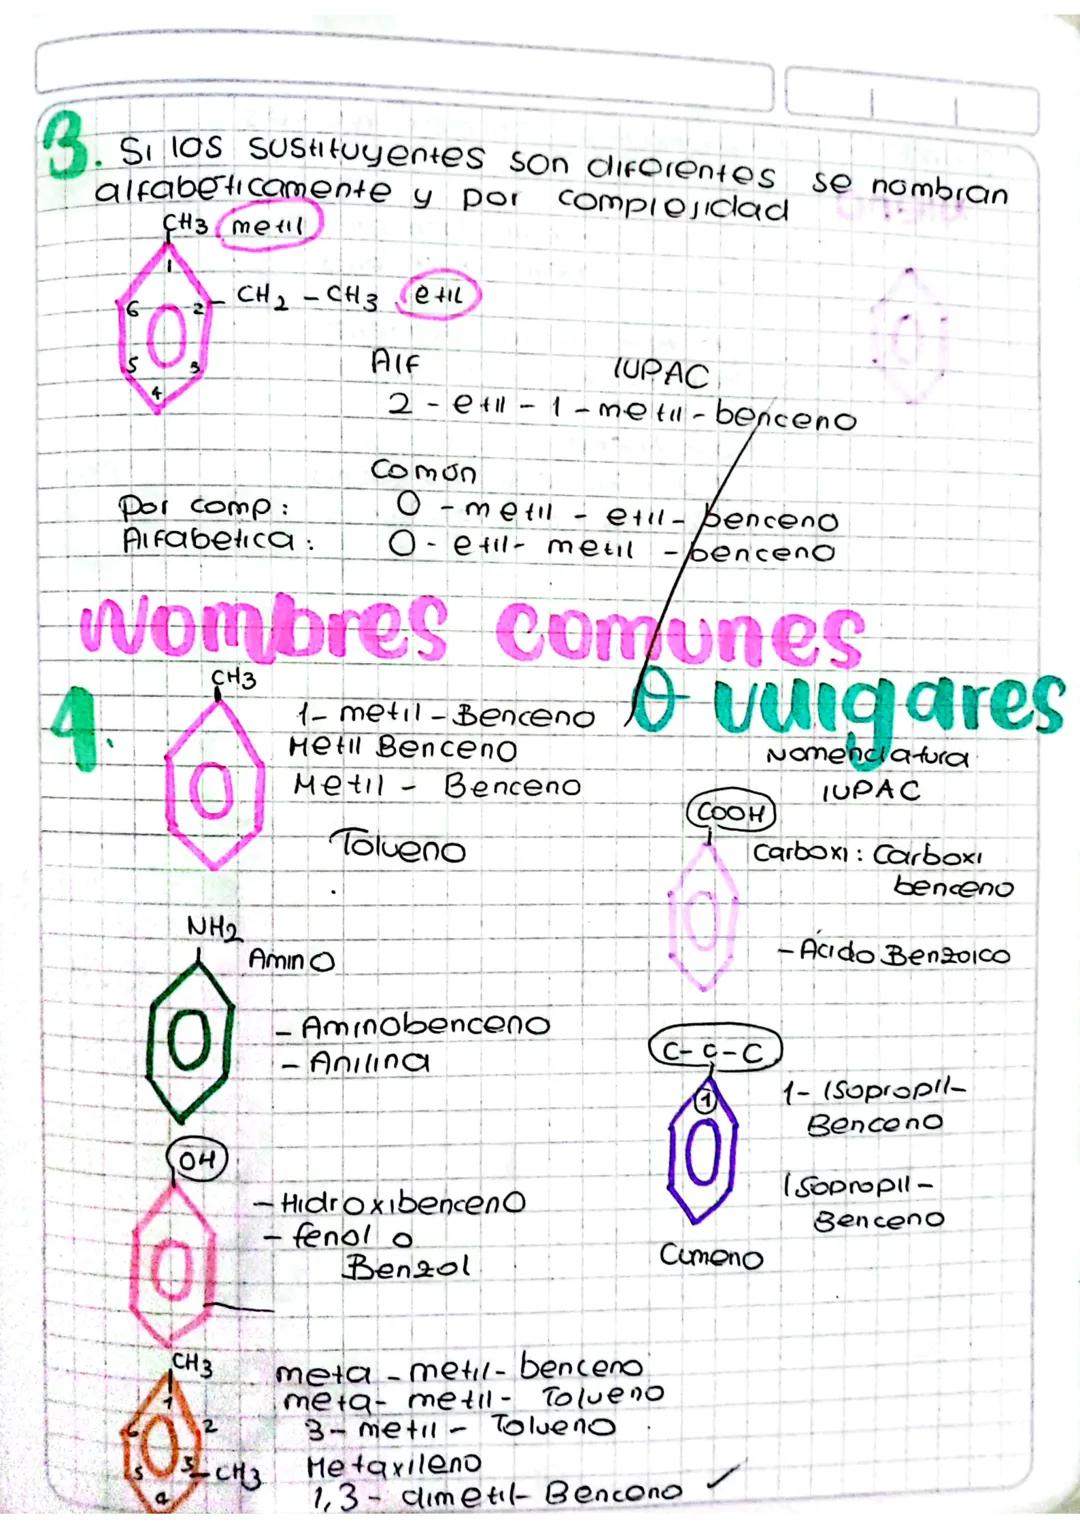 3. Si los sustituyentes son diferentes se nombran
alfabeticamente y por complejidad
CH3 metil
1
6 2
CH2 - CH3 etil
5 3
4
Alf IUPAC
2 - etil - 1 - metil - benceno
Común
Por comp: O - metil - etil - benceno
Alfabetica: O - etil - metil - benceno
Nombres comunes
O vulgares
4.
CH3
1- metil - Benceno
Metil Benceno
Metil - Benceno
Tolueno
Nomenclatura
IUPAC
COOH
Carboxi: Carboxi
benceno
- Acido Benzoico
NH2
Amino
- Aminobenceno
- Anilina
C-C-C
1
1- Isopropil-
Benceno
Isopropil-
Benceno
Cumeno
OH
- Hidroxibenceno
- fenol o
Benzol
CH3
1
6 2
5 3 CH3
4
meta - metil - benceno
meta - metil - Tolueno
3 - metil - Tolueno
Metaxileno
1,3 - dimetil - Benceno ✓